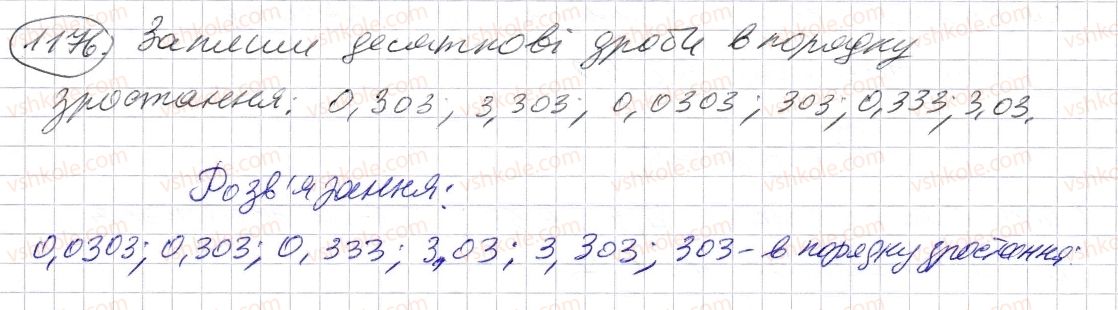 1176. Запиши десяткові дроби в порядку
зростання: 0,303; 3,303; 0,0303; 303; 0,333; 3,03.
Розв'язання:
0,0303; 0,303; 0,333; 3,03; 3,303; 303 - в порядку зростання.